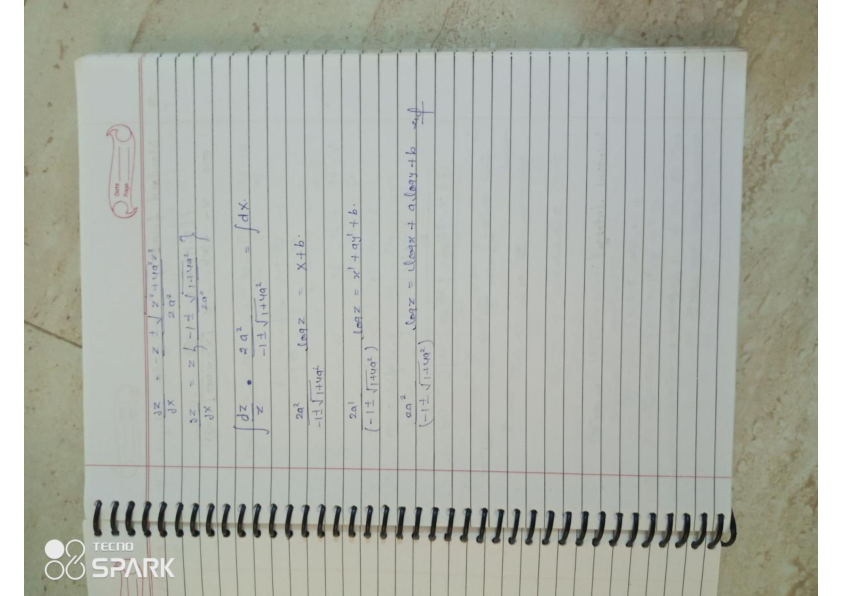 Date
Page
dz/dx = -z ± √z²+4a²z² / 2a²
dz/dx = z { -1 ± √1+4a² / 2a² }
∫ dz/z • 2a² / -1±√1+4a² = ∫dx.
2a² / -1±√1+4a² log z = x+b.
2a² / (-1±√1+4a²) log z = x' + ay' + b.
2a² / (-1±√1+4a²) log z = log x + a log y + b
TECNO
SPARK